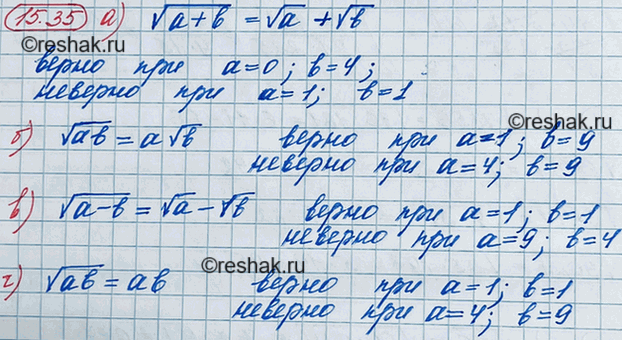 15.35 а) √a+b = √a + √b
©reshak.ru
верно при a=0; b=4;
неверно при a=1; b=1
©reshak.ru
б) √ab = a√b верно при a=1; b=9
неверно при a=4; b=9
в) √a-b = √a - √b верно при a=1; b=1
неверно при a=9; b=4
©reshak.ru
г) √ab = ab верно при a=1; b=1
неверно при a=4; b=9